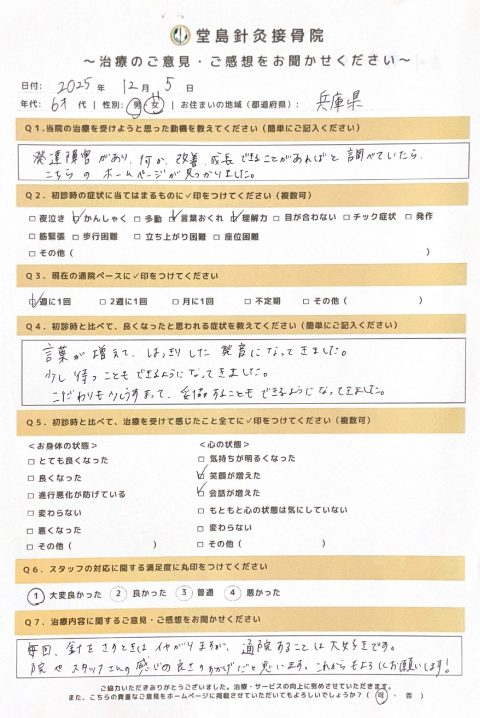 堂島針灸接骨院
〜治療のご意見・ご感想をお聞かせください〜
日付： 2025年 12月 5日
年代： 6才 代 | 性別： 男・女 | お住まいの地域（都道府県）： 兵庫県
Q1.当院の治療を受けようと思った動機を教えてください（簡単にご記入ください）
発達障害があり、何か、改善、成長できることがあればと調べていたら、
こちらのホームページが見つかりました。
Q2．初診時の症状に当てはまるものに✓印をつけてください（複数可）
□夜泣き ☑かんしゃく □多動 ☑言葉おくれ ☑理解力 □目が合わない □チック症状 □発作
□筋緊張 □歩行困難 □立ち上がり困難 □座位困難
□その他（ ）
Q3．現在の通院ペースに✓印をつけてください
☑週に1回 □2週に1回 □月に1回 □不定期 □その他（ ）
Q4．初診時と比べて、良くなったと思われる症状を教えてください（簡単にご記入ください）
言葉が増えて、はっきりした発音になってきました。
少し待つこともできるようになってきました。
こだわりも少しうすまって、妥協することもできるようになってきました。
Q5．初診時と比べて、治療を受けて感じたこと全てに✓印をつけてください（複数可）
＜お身体の状態＞ ＜心の状態＞
□とても良くなった □気持ちが明るくなった
□良くなった ☑笑顔が増えた
□進行悪化が防げている ☑会話が増えた
□変わらない □もともと心の状態は気にしていない
□悪くなった □変わらない
□その他（ ） □その他（ ）
Q6．スタッフの対応に関する満足度に丸印をつけてください
① 大変良かった ② 良かった ③ 普通 ④ 悪かった
Q7．治療内容に関するご意見・ご感想をお聞かせください
毎回、針をさすときはイヤがりますが、通院することは大好きです。
院やスタッフさんの感じの良さのおかげだと思います。これからもよろしくお願いします！
ご協力いただきありがとうございました。治療・サービスの向上に努めさせていただきます。
また、こちらの貴重なご意見をホームページに掲載させていただいてもよろしいでしょうか？（ 可 ・ 否 ）